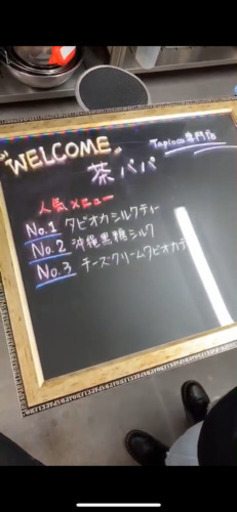 WELCOME
Tapioca専門店
茶パパ
人気メニュー
No.1 タピオカシルクティー
No.2 沖縄黒糖シルク
No.3 チーズクリームタピオカ